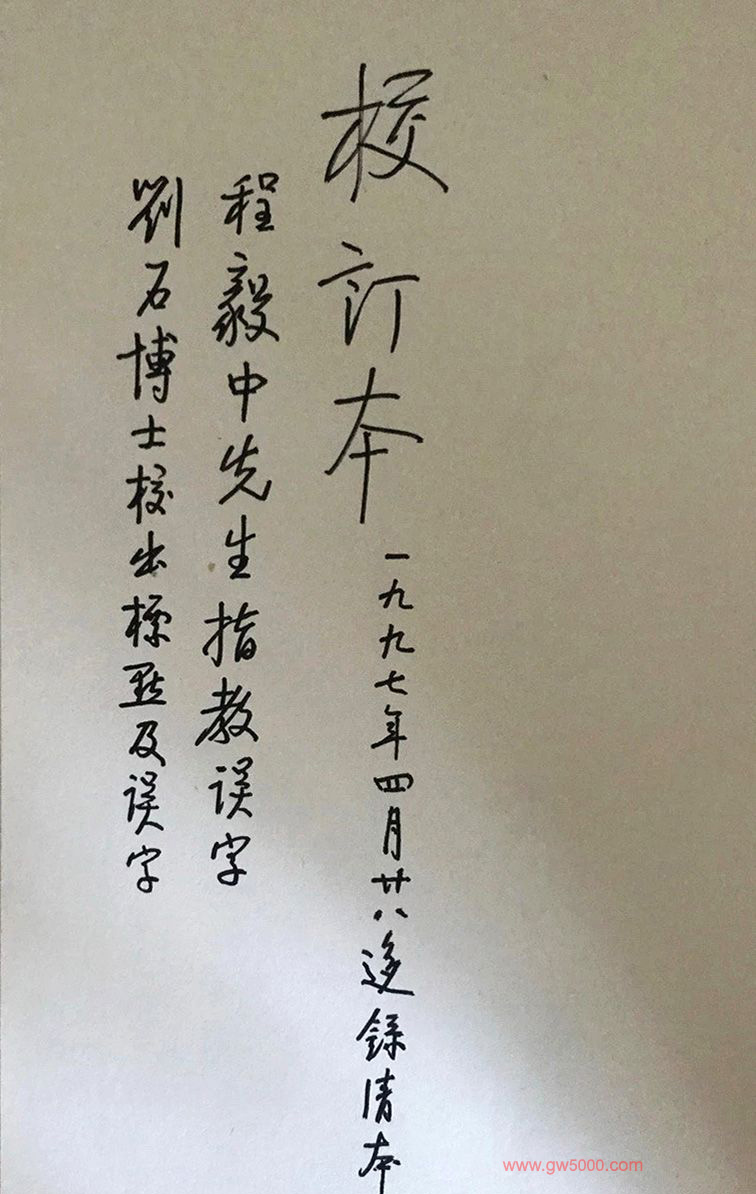 校訂本
一九九七年四月廿八迻錄清本
程毅中先生指教误字
劉石博士校出標點及误字
www.gw5000.com